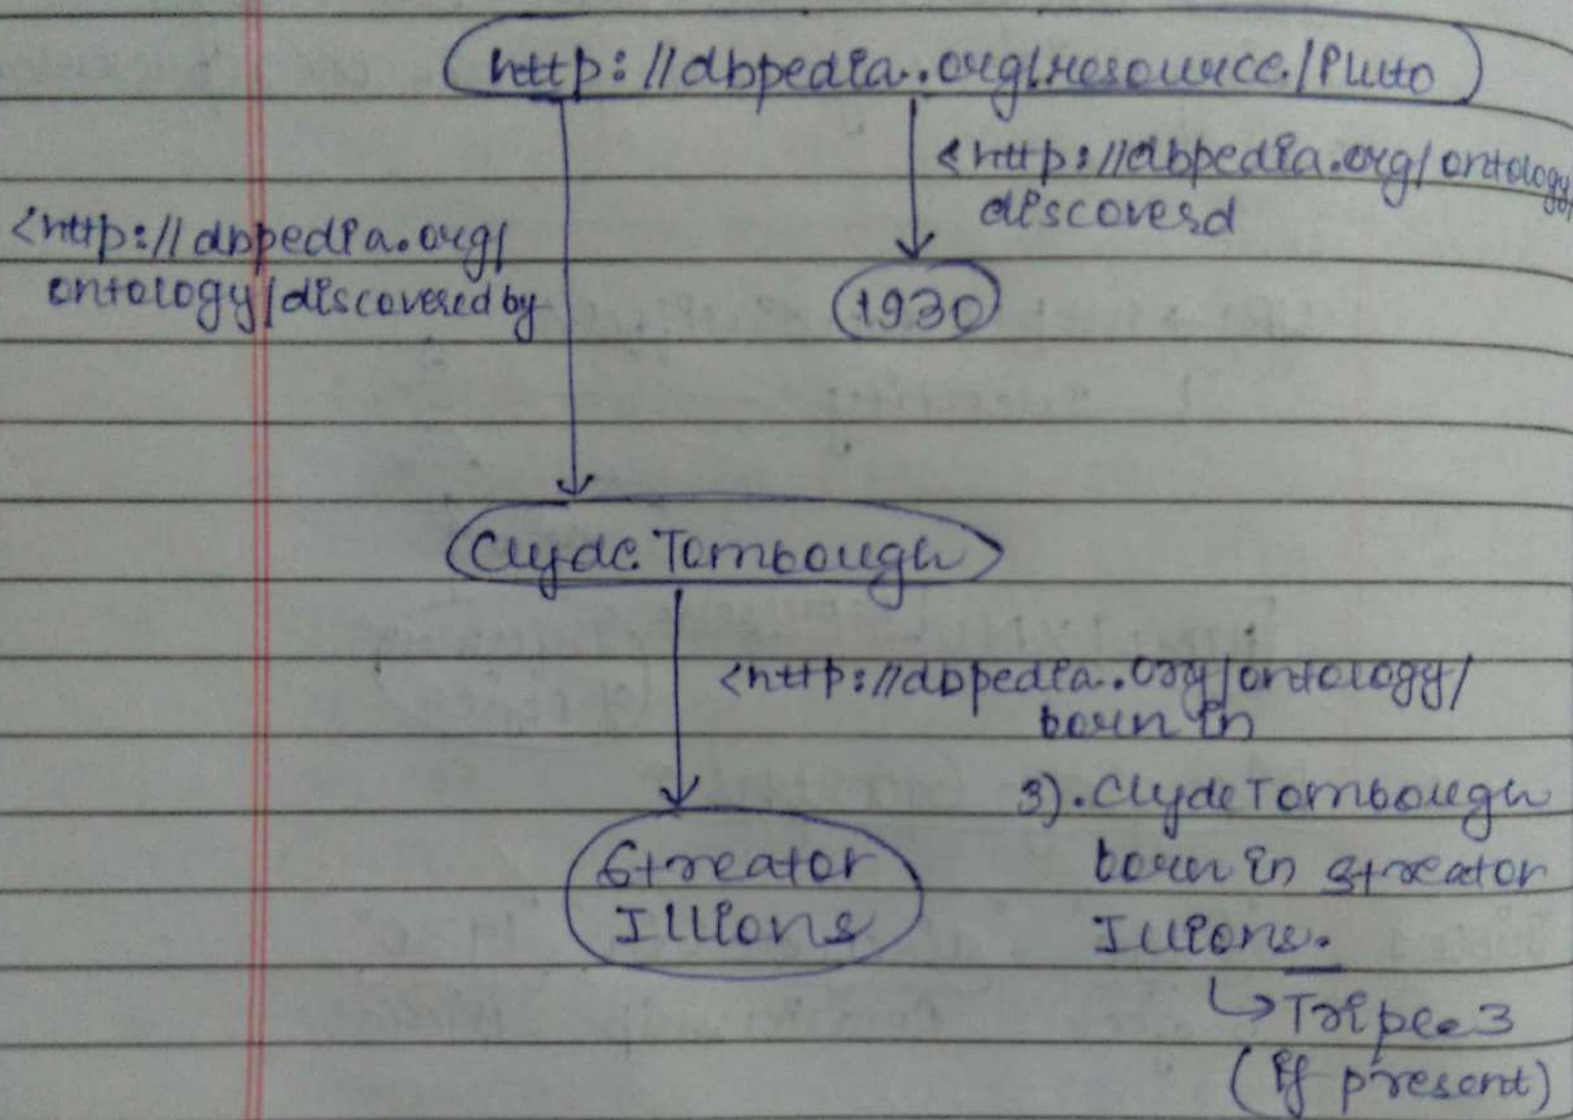 http://dbpedia..org/resource/Pluto
<http://dbpedia.org/ontology/
discoverd
<http://dbpedia.org/
ontology/discovered by
1930
Clyde Tombough
<http://dbpedia.org/ontology/
born in
Streator
Illions
3).Clyde Tombough
born in streator
Illions.
↳Triple 3
(if present)